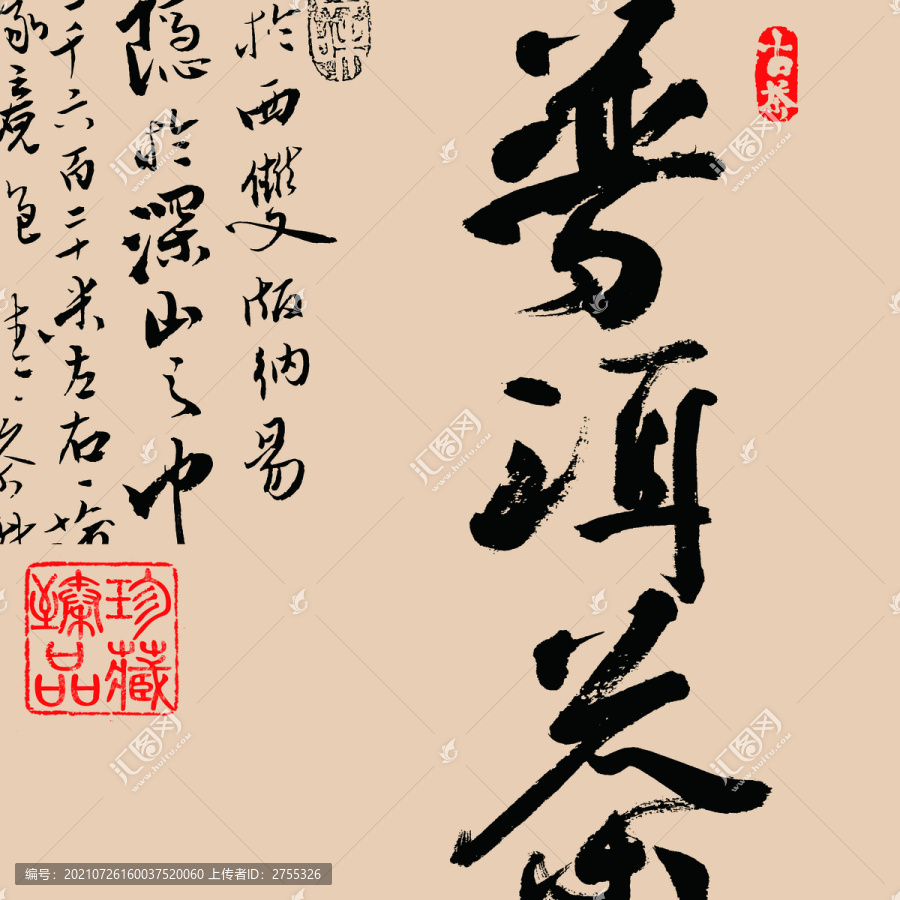 古茶
普洱茶
於西雙版纳易
隐於深山之中
千六百二十米左右
境色
珍藏
臻品
汇图网
www.huitu.com
编号：20210726160037520060 上传者ID：2755326